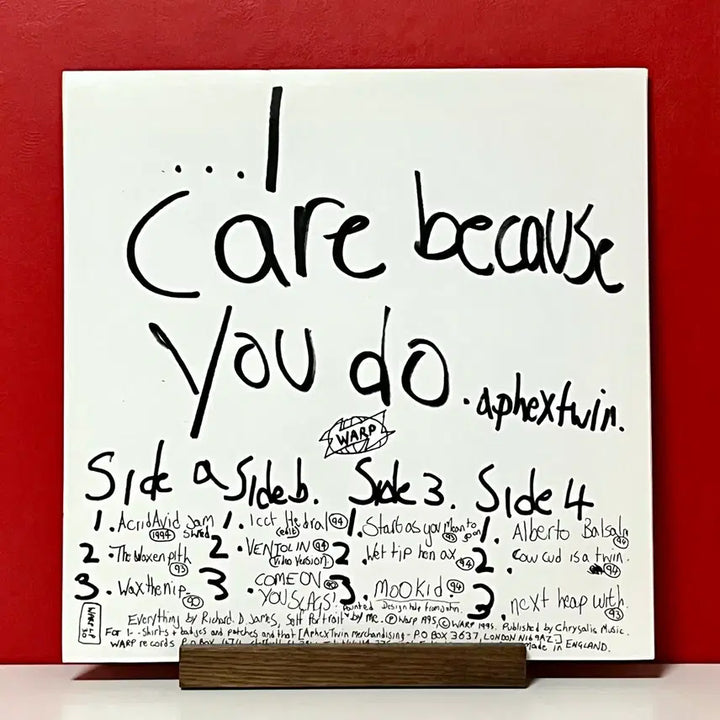 ...I
care because
you do.
aphextwin.
WARP
Side a
1. Acrid Avid Jam
Shred
1994
2. The Waxen pith
93
3. Wax the nip.
90
Side b.
1. icct Hedral 94
(edit)
2. VENTOLIN 94
(Video Version)
3. COME ON
YOU SLAGS!
Side 3.
1. Start as you Mean to
go on
2. Wet tip hen ax. 94
3. Mookid. 94
Side 4
1. Alberto Balsalm
94
2. Cow cud is a twin.
94
3. next heap with.
93
WARP LP
30
Painted Design help from John.
Everything by Richard. D. James, Self Portrait by me. Ⓟ Warp 1995, © WARP 1995. Published by Chrysalis Music.
For T-Shirts & badges and patches and that [Aphex Twin Merchandising - PO BOX 3637, LONDON N16 9AZ]
WARP records P.O. BOX Made in ENGLAND.